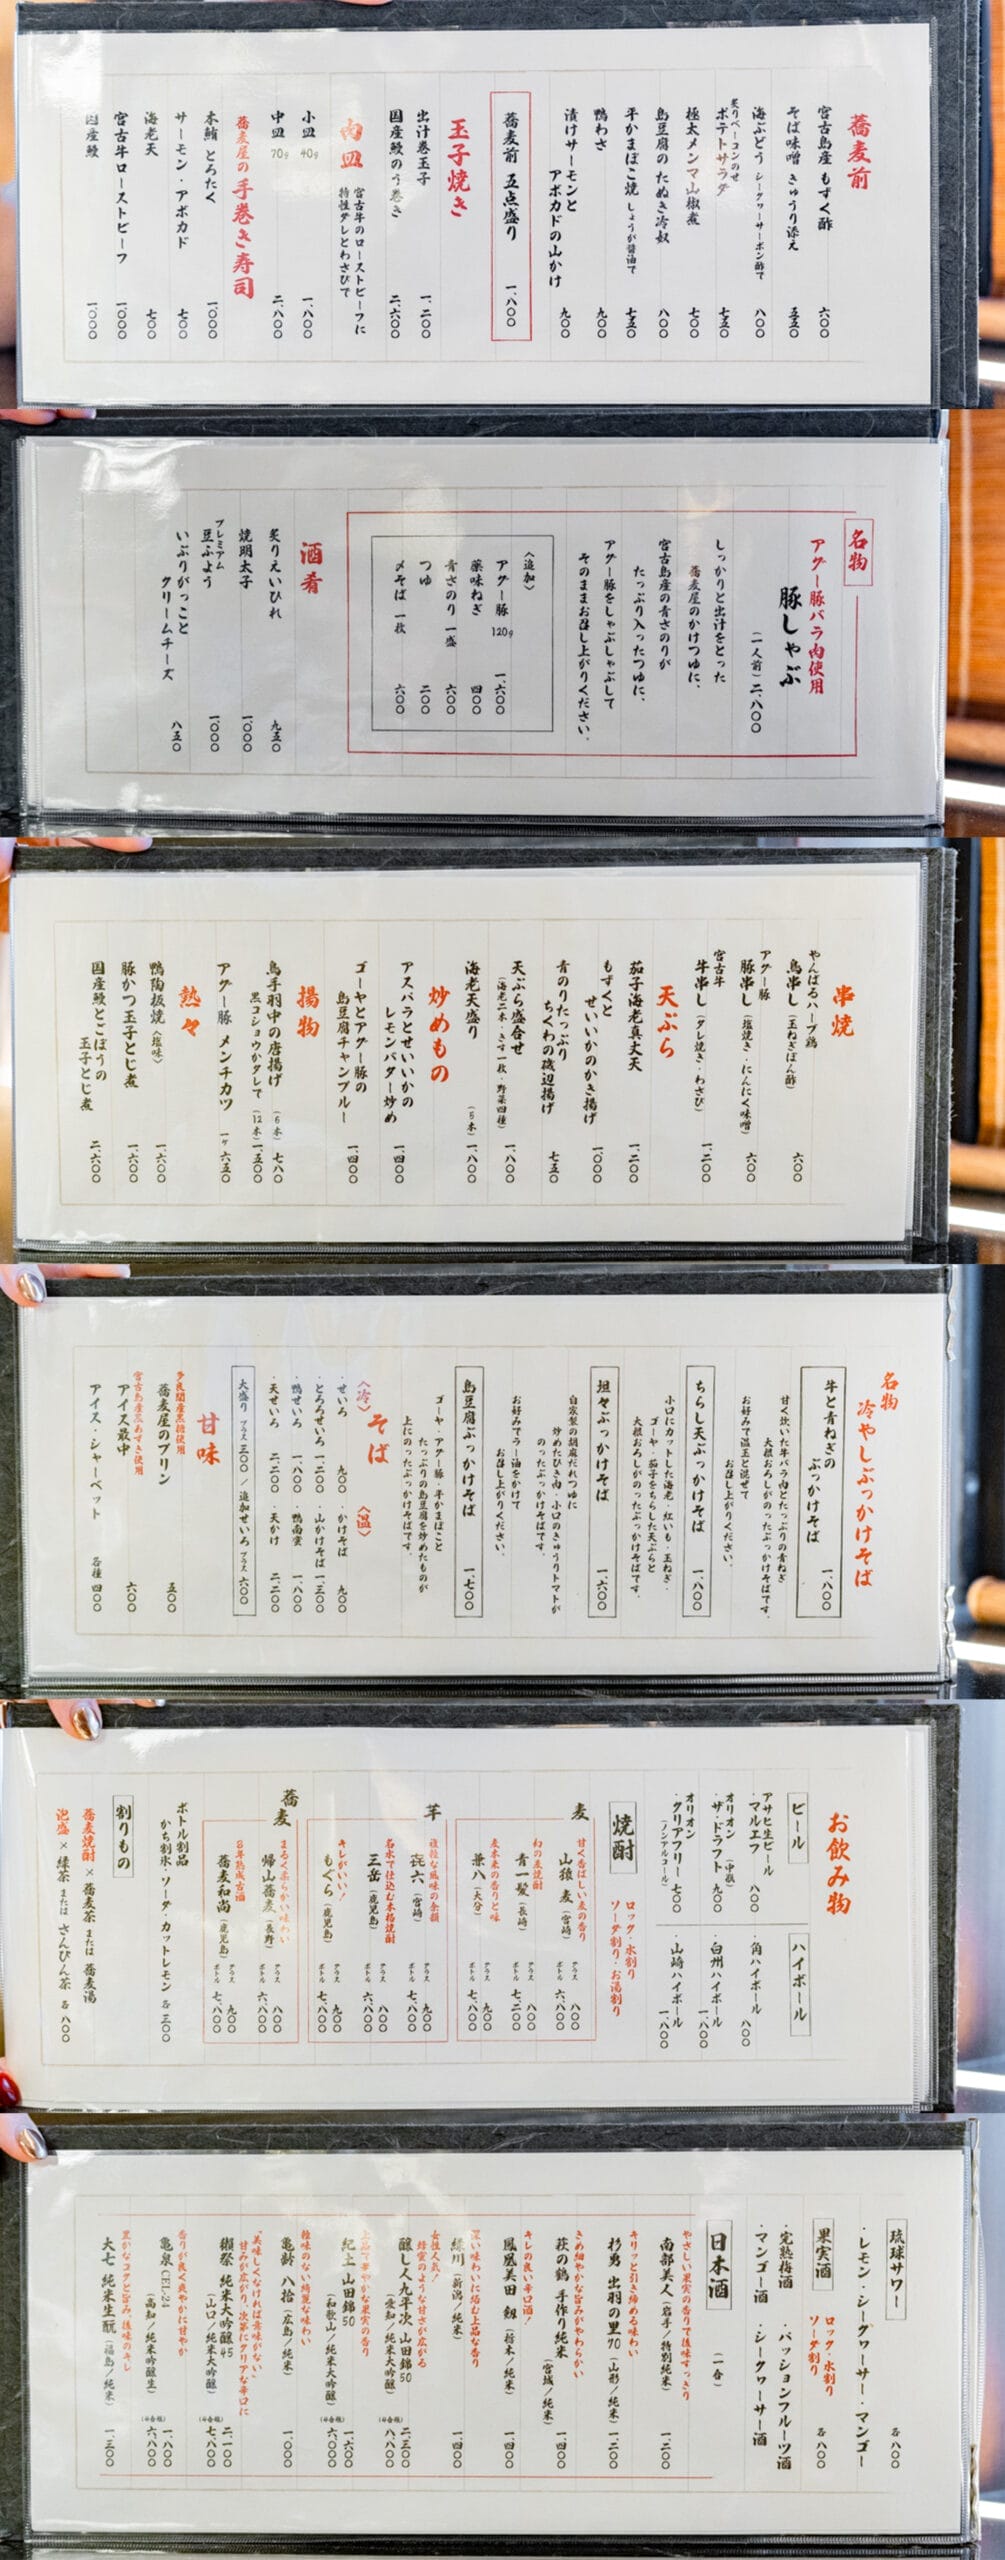 蕎麦前
宮古島産 もずく酢 六〇〇
そば味噌 きゅうり添え 五五〇
海ぶどう シークヮーサーポン酢で 八〇〇
炙りベーコンのせ
ポテトサラダ 七五〇
極太メンマ山椒煮 七〇〇
島豆腐の たぬき冷奴 八〇〇
平かまぼこ焼 しょうが醤油で 七五〇
鴨わさ 九〇〇
漬けサーモンと
アボカドの山かけ 九〇〇
蕎麦前 五点盛り 一、八〇〇
玉子焼き
出汁巻玉子 一、二〇〇
国産鰻のう巻き 二、六〇〇
肉皿 宮古牛のローストビーフに
特性ダレとわさびで
小皿 40g 一、八〇〇
中皿 70g 二、八〇〇
蕎麦屋の手巻き寿司
本鮪 とろたく 一、〇〇〇
サーモン・アボカド 七〇〇
海老天 七〇〇
宮古牛ローストビーフ 一、〇〇〇
国産鰻 一、〇〇〇
名物
アグー豚バラ肉使用
豚しゃぶ
(一人前) 二、八〇〇
しっかりと出汁をとった
蕎麦屋のかけつゆに、
宮古島産の青さのりが
たっぷり入ったつゆに、
アグー豚をしゃぶしゃぶして
そのままお召し上がりください。
〈追加〉
アグー豚 120g 一、六〇〇
薬味ねぎ 四〇〇
青さのり 一盛 六〇〇
つゆ 二〇〇
〆そば 一枚 六〇〇
酒肴
炙りえいひれ 九五〇
焼明太子 一、〇〇〇
プレミアム
豆ふよう 一、〇〇〇
いぶりがっこと
クリームチーズ 八五〇
串焼
やんばるハーブ鶏
鳥串し (玉ねぎぽん酢) 六〇〇
アグー豚
豚串し (塩焼き・にんにく味噌) 六〇〇
宮古牛
牛串し (タレ焼き・わさび) 一、二〇〇
天ぷら
茄子海老真丈天 一、二〇〇
もずくと
せいいかのかき揚げ 一、〇〇〇
青のりたっぷり
ちくわの磯辺揚げ 七五〇
天ぷら盛合せ
(海老二本・きす一枚・野菜四種) 一、八〇〇
海老天盛り (5本) 一、八〇〇
炒めもの
アスパラとせいいかの
レモンバター炒め 一、四〇〇
ゴーヤとアグー豚の
島豆腐チャンプルー 一、四〇〇
揚物
鳥手羽中の唐揚げ (6本) 七八〇
黒コショウかタレで (12本) 一、五〇〇
アグー豚 メンチカツ 一ヶ 六五〇
熱々
鴨陶板焼〈塩味〉 一、六〇〇
豚かつ玉子とじ煮 一、六〇〇
国産鰻とごぼうの
玉子とじ煮 二、六〇〇
名物
冷やしぶっかけそば
牛と青ねぎの
ぶっかけそば 一、八〇〇
甘く炊いた牛バラ肉とたっぷりの青ねぎ
大根おろしがのったぶっかけそばです。
お好みで温玉と混ぜて
お召し上がりください。
ちらし天ぶっかけそば 一、八〇〇
小口にカットした海老・紅いも・玉ねぎ・
ゴーヤ・茄子をちらした天ぷらと
大根おろしがのったぶっかけそばです。
坦々ぶっかけそば 一、六〇〇
自家製の胡麻だれつゆに
炒めたひき肉・小口のきゅうりトマトが
のったぶっかけそばです。
お好みでラー油をかけて
お召し上がりください。
島豆腐ぶっかけそば 一、七〇〇
ゴーヤ・アグー豚・平かまぼこと
たっぷりの島豆腐を炒めたものが
上にのったぶっかけそばです。
そば
〈冷〉 〈温〉
・せいろ 九〇〇 ・かけそば 九〇〇
・とろろせいろ 一、二〇〇 ・山かけそば 一、三〇〇
・鴨せいろ 一、八〇〇 ・鴨南蛮 一、八〇〇
・天せいろ 二、二〇〇 ・天かけ 二、二〇〇
大盛り プラス 三〇〇 / 追加せいろ プラス 六〇〇
甘味
多良間産黒糖使用
蕎麦屋のプリン 五〇〇
宮古島産黒あずき使用
アイス最中 六〇〇
アイス・シャーベット 各種 四〇〇
お飲み物
ビール
アサヒ生ビール
・マルエフ 八〇〇
オリオン
・ザ・ドラフト (中瓶) 九〇〇
オリオン
・クリアフリー (ノンアルコール) 七〇〇
ハイボール
・角ハイボール 八〇〇
・白州ハイボール 一、八〇〇
・山崎ハイボール 一、八〇〇
焼酎
ロック・水割り
ソーダ割り・お湯割り
麦
甘く香ばしい麦の香り
山猿 麦 (宮崎) グラス 八〇〇
ボトル 六、八〇〇
幻の麦焼酎
青一髪 (長崎) グラス 八〇〇
ボトル 七、二〇〇
麦本来の香りと味
兼八 (大分) グラス 九〇〇
ボトル 七、八〇〇
芋
複雑な風味の余韻
㐂六 (宮崎) グラス 九〇〇
ボトル 七、八〇〇
名水で仕込む本格焼酎
三岳 (鹿児島) グラス 八〇〇
ボトル 六、八〇〇
キレがいい!
もぐら (鹿児島) グラス 九〇〇
ボトル 七、八〇〇
蕎麦
まるく柔らかい味わい
帰山蕎麦 (長野) グラス 八〇〇
ボトル 六、八〇〇
8年熟成古酒
蕎麦和尚 (鹿児島) グラス 九〇〇
ボトル 七、八〇〇
ボトル割品
かち割氷・ソーダ・カットレモン 各 三〇〇
割りもの
蕎麦焼酎 × 蕎麦茶 または 蕎麦湯
泡盛 × 緑茶 または さんぴん茶 各 八〇〇
琉球サワー 各 八〇〇
・レモン・シークヮーサー・マンゴー
果実酒 ロック・水割り
ソーダ割り 各 八〇〇
・完熟梅酒 ・パッションフルーツ酒
・マンゴー酒 ・シークヮーサー酒
日本酒 (一合)
やさしい果実の香りで後味すっきり
南部美人 (岩手/特別純米) 一、二〇〇
キリッと引き締める味わい
杉勇 出羽の里70 (山形/純米) 一、二〇〇
きめ細やかな旨みがやわらかい
萩の鶴 手作り純米 (宮城/純米) 一、四〇〇
キレの良い辛口酒!
鳳凰美田 剱 (栃木/純米) 一、四〇〇
深い味わいに絡む上品な香り
緑川 (新潟/純米) 一、四〇〇
女性人気!
蜂蜜のような甘さが広がる
醸し人九平次 山田錦50
(愛知/純米大吟醸) 二、三〇〇
(4合瓶) 八、八〇〇
上品で華やかな果実の香り
紀土 山田錦50
(和歌山/純米大吟醸) 一、六〇〇
(4合瓶) 六、〇〇〇
雑味のない綺麗な味わい
亀齢 八拾 (広島/純米) 一、〇〇〇
“美味しくなければ意味がない”
甘みが広がり、次第にクリアな辛口に
獺祭 純米大吟醸45
(山口/純米大吟醸) 二、一〇〇
(4合瓶) 七、八〇〇
香りが良く爽やかに甘やか
亀泉 CEL-24
(高知/純米吟醸生) 一、八〇〇
(4合瓶) 六、八〇〇
豊かなコクと旨み、後味のキレ
大七 純米生酛 (福島/純米) 一、三〇〇